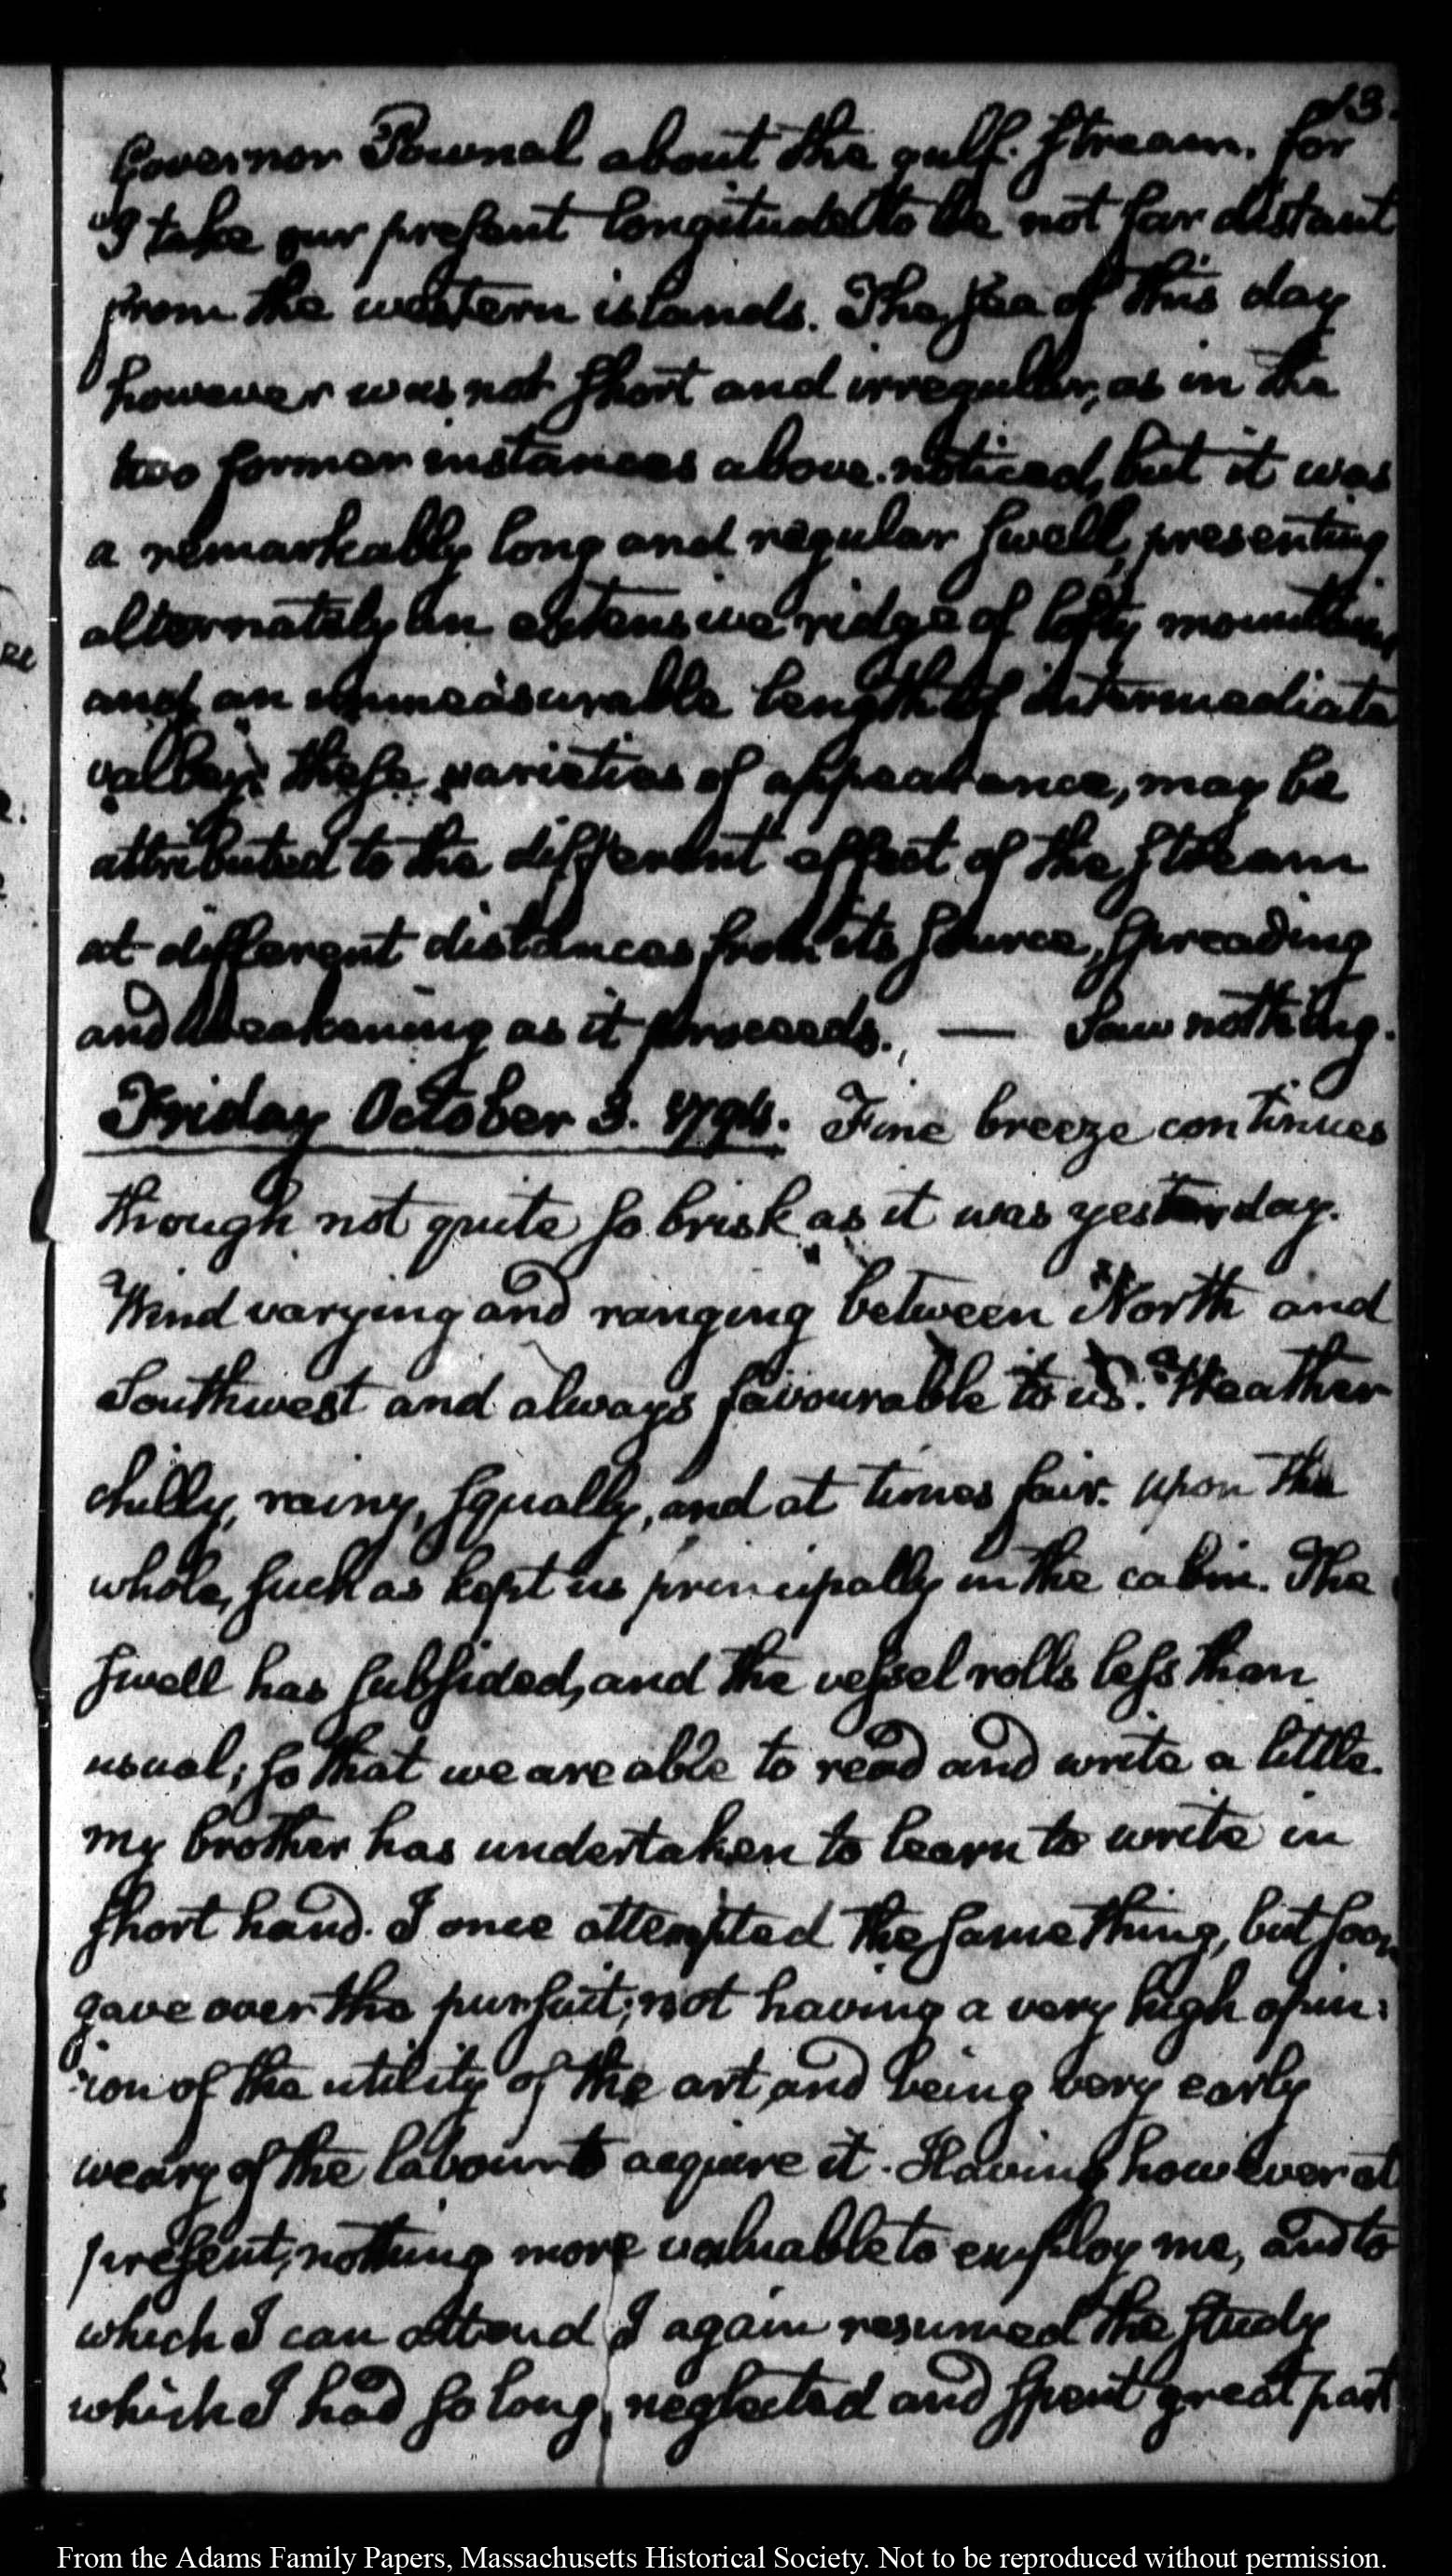 13.
Governor Pownal about the gulf. stream. for
I take our present longitude to be not far distant
from the western islands. The sea of this day
however was not short and irregular, as in the
two former instances above. noticed, but it was
a remarkably long and regular swell, presenting
alternately an extensive ridge of lofty mountains
and an immeasurable length of intermediate
valley. these varieties of appearance, may be
attributed to the different effect of the stream
at different distances from its source, spreading
and weakening as it proceeds. — Saw nothing.
Friday October 3. 1794. Fine breeze continues
though not quite so brisk as it was yesterday.
Wind varying and ranging between North and
Southwest and always favourable to us. Weather
chilly, rainy, squally, and at times fair. upon the
whole, such as kept us principally in the cabin. The
swell has subsided, and the vessel rolls less than
usual; so that we are able to read and write a little.
my brother has undertaken to learn to write in
short hand. I once attempted the same thing, but soon
gave over the pursuit; not having a very high opin:
:ion of the utility of the art, and being very early
weary of the labour to acquire it. Having however at
present, nothing more valuable to employ me, and to
which I can attend I again resumed the study
which I had so long neglected and spent great part
From the Adams Family Papers, Massachusetts Historical Society. Not to be reproduced without permission.